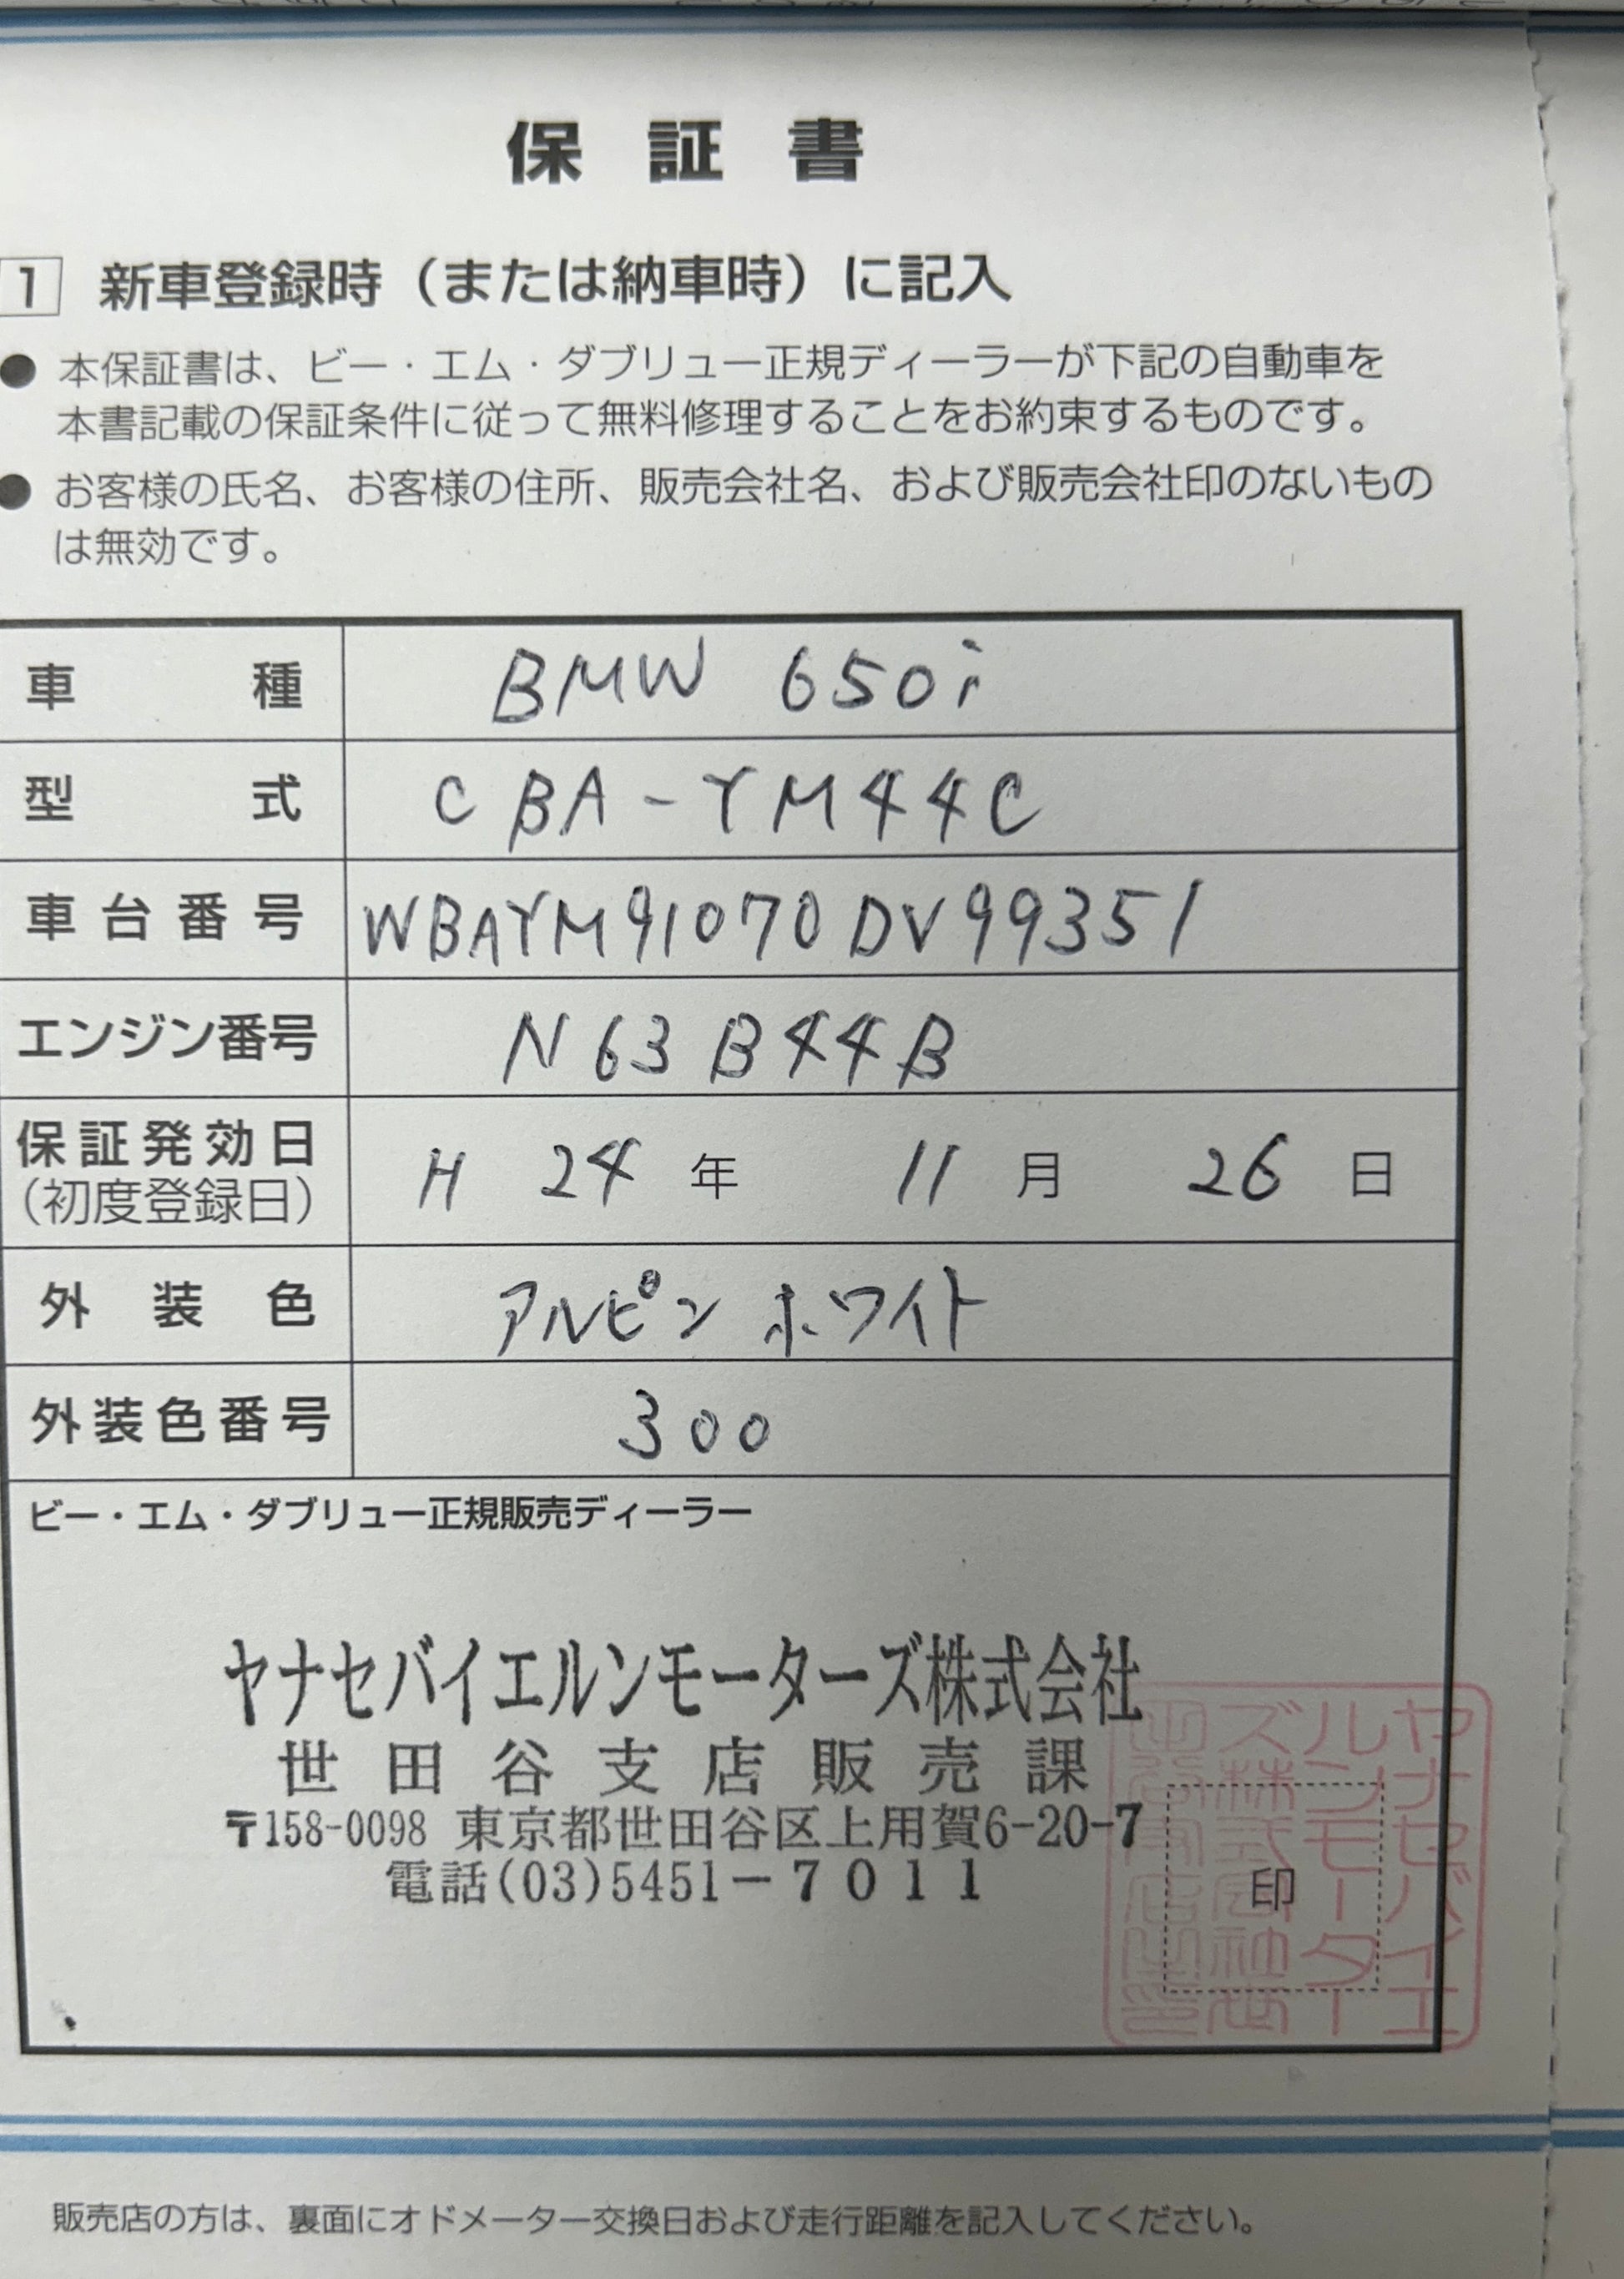 保証書
1 新車登録時（または納車時）に記入
● 本保証書は、ビー・エム・ダブリュー正規ディーラーが下記の自動車を
本書記載の保証条件に従って無料修理することをお約束するものです。
● お客様の氏名、お客様の住所、販売会社名、および販売会社印のないもの
は無効です。
車種 BMW 650i
型式 CBA-YM44C
車台番号 WBAYM91070DV99351
エンジン番号 N63B44B
保証発効日 H 24 年 11 月 26 日
（初度登録日）
外装色 アルピンホワイト
外装色番号 300
ビー・エム・ダブリュー正規販売ディーラー
ヤナセバイエルンモーターズ株式会社
世田谷支店販売課
〒158-0098 東京都世田谷区上用賀6-20-7
電話(03)5451-7011
印
ヤナセバイエ
ルンモーター
ズ株式会社
販売店の方は、裏面にオドメーター交換日および走行距離を記入してください。